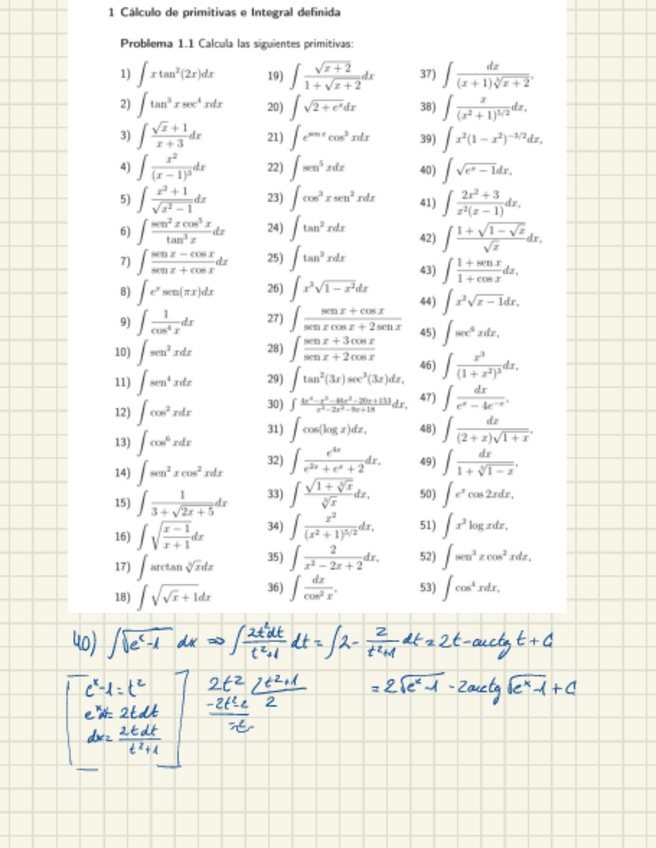 1 Cálculo de primitivas e Integral definida
Problema 1.1 Calcula las siguientes primitivas:
1) ∫ x tan²(2x)dx
2) ∫ tan³ x sec⁴ xdx
3) ∫ (√x + 1)/(x + 3) dx
4) ∫ x²/(x − 1)³ dx
5) ∫ (x² + 1)/√(x² − 1) dx
6) ∫ (sen² x cos⁵ x)/(tan³ x) dx
7) ∫ (sen x − cos x)/(sen x + cos x) dx
8) ∫ eˣ sen(πx)dx
9) ∫ 1/(cos⁴ x) dx
10) ∫ sen² xdx
11) ∫ sen⁴ xdx
12) ∫ cos² xdx
13) ∫ cos⁶ xdx
14) ∫ sen² x cos² xdx
15) ∫ 1/(3 + √(2x + 5)) dx
16) ∫ √((x − 1)/(x + 1)) dx
17) ∫ arctan ∛x dx
18) ∫ √(√x + 1)dx
19) ∫ √(x + 2)/(1 + √(x + 2)) dx
20) ∫ √(2 + eˣ)dx
21) ∫ e^(sen x) cos³ xdx
22) ∫ sen⁵ xdx
23) ∫ cos³ x sen² xdx
24) ∫ tan² xdx
25) ∫ tan³ xdx
26) ∫ x³√(1 − x²)dx
27) ∫ (sen x + cos x)/(sen x cos x + 2 sen x)
28) ∫ (sen x + 3 cos x)/(sen x + 2 cos x)
29) ∫ tan²(3x) sec³(3x)dx,
30) ∫ (4x⁴−x³−46x²−20x+153)/(x³−2x²−9x+18) dx,
31) ∫ cos(log x)dx,
32) ∫ e^(4x)/(e^(2x) + eˣ + 2) dx,
33) ∫ √(1 + ∛x)/∛x dx,
34) ∫ x²/(x² + 1)^(5/2) dx,
35) ∫ 2/(x² − 2x + 2) dx,
36) ∫ dx/(cos² x),
37) ∫ dx/((x + 1)∛(x + 2)),
38) ∫ x/(x² + 1)^(5/2) dx,
39) ∫ x²(1 − x²)^(−3/2)dx,
40) ∫ √(eˣ − 1)dx,
41) ∫ (2x² + 3)/(x²(x − 1)) dx,
42) ∫ (1 + √(1 − √x))/√x dx,
43) ∫ (1 + sen x)/(1 + cos x) dx,
44) ∫ x²√(x − 1)dx,
45) ∫ sec⁶ xdx,
46) ∫ x³/(1 + x²)³ dx,
47) ∫ dx/(eˣ − 4e⁻ˣ),
48) ∫ dx/((2 + x)√(1 + x)),
49) ∫ dx/(1 + ∛(1 − x)),
50) ∫ eˣ cos 2xdx,
51) ∫ x² log xdx,
52) ∫ sen³ x cos² xdx,
53) ∫ cos⁴ xdx,
40) ∫√(eˣ-1) dx ⇒ ∫ 2t²dt/(t²+1) dt = ∫2- 2/(t²+1) dt = 2t - arctg t + C
eˣ-1 = t²
eˣdx = 2tdt
dx = 2tdt/(t²+1)
2t² | t²+1
-2t²-2 2
-2
= 2√(eˣ-1) - 2arctg √(eˣ-1) + C